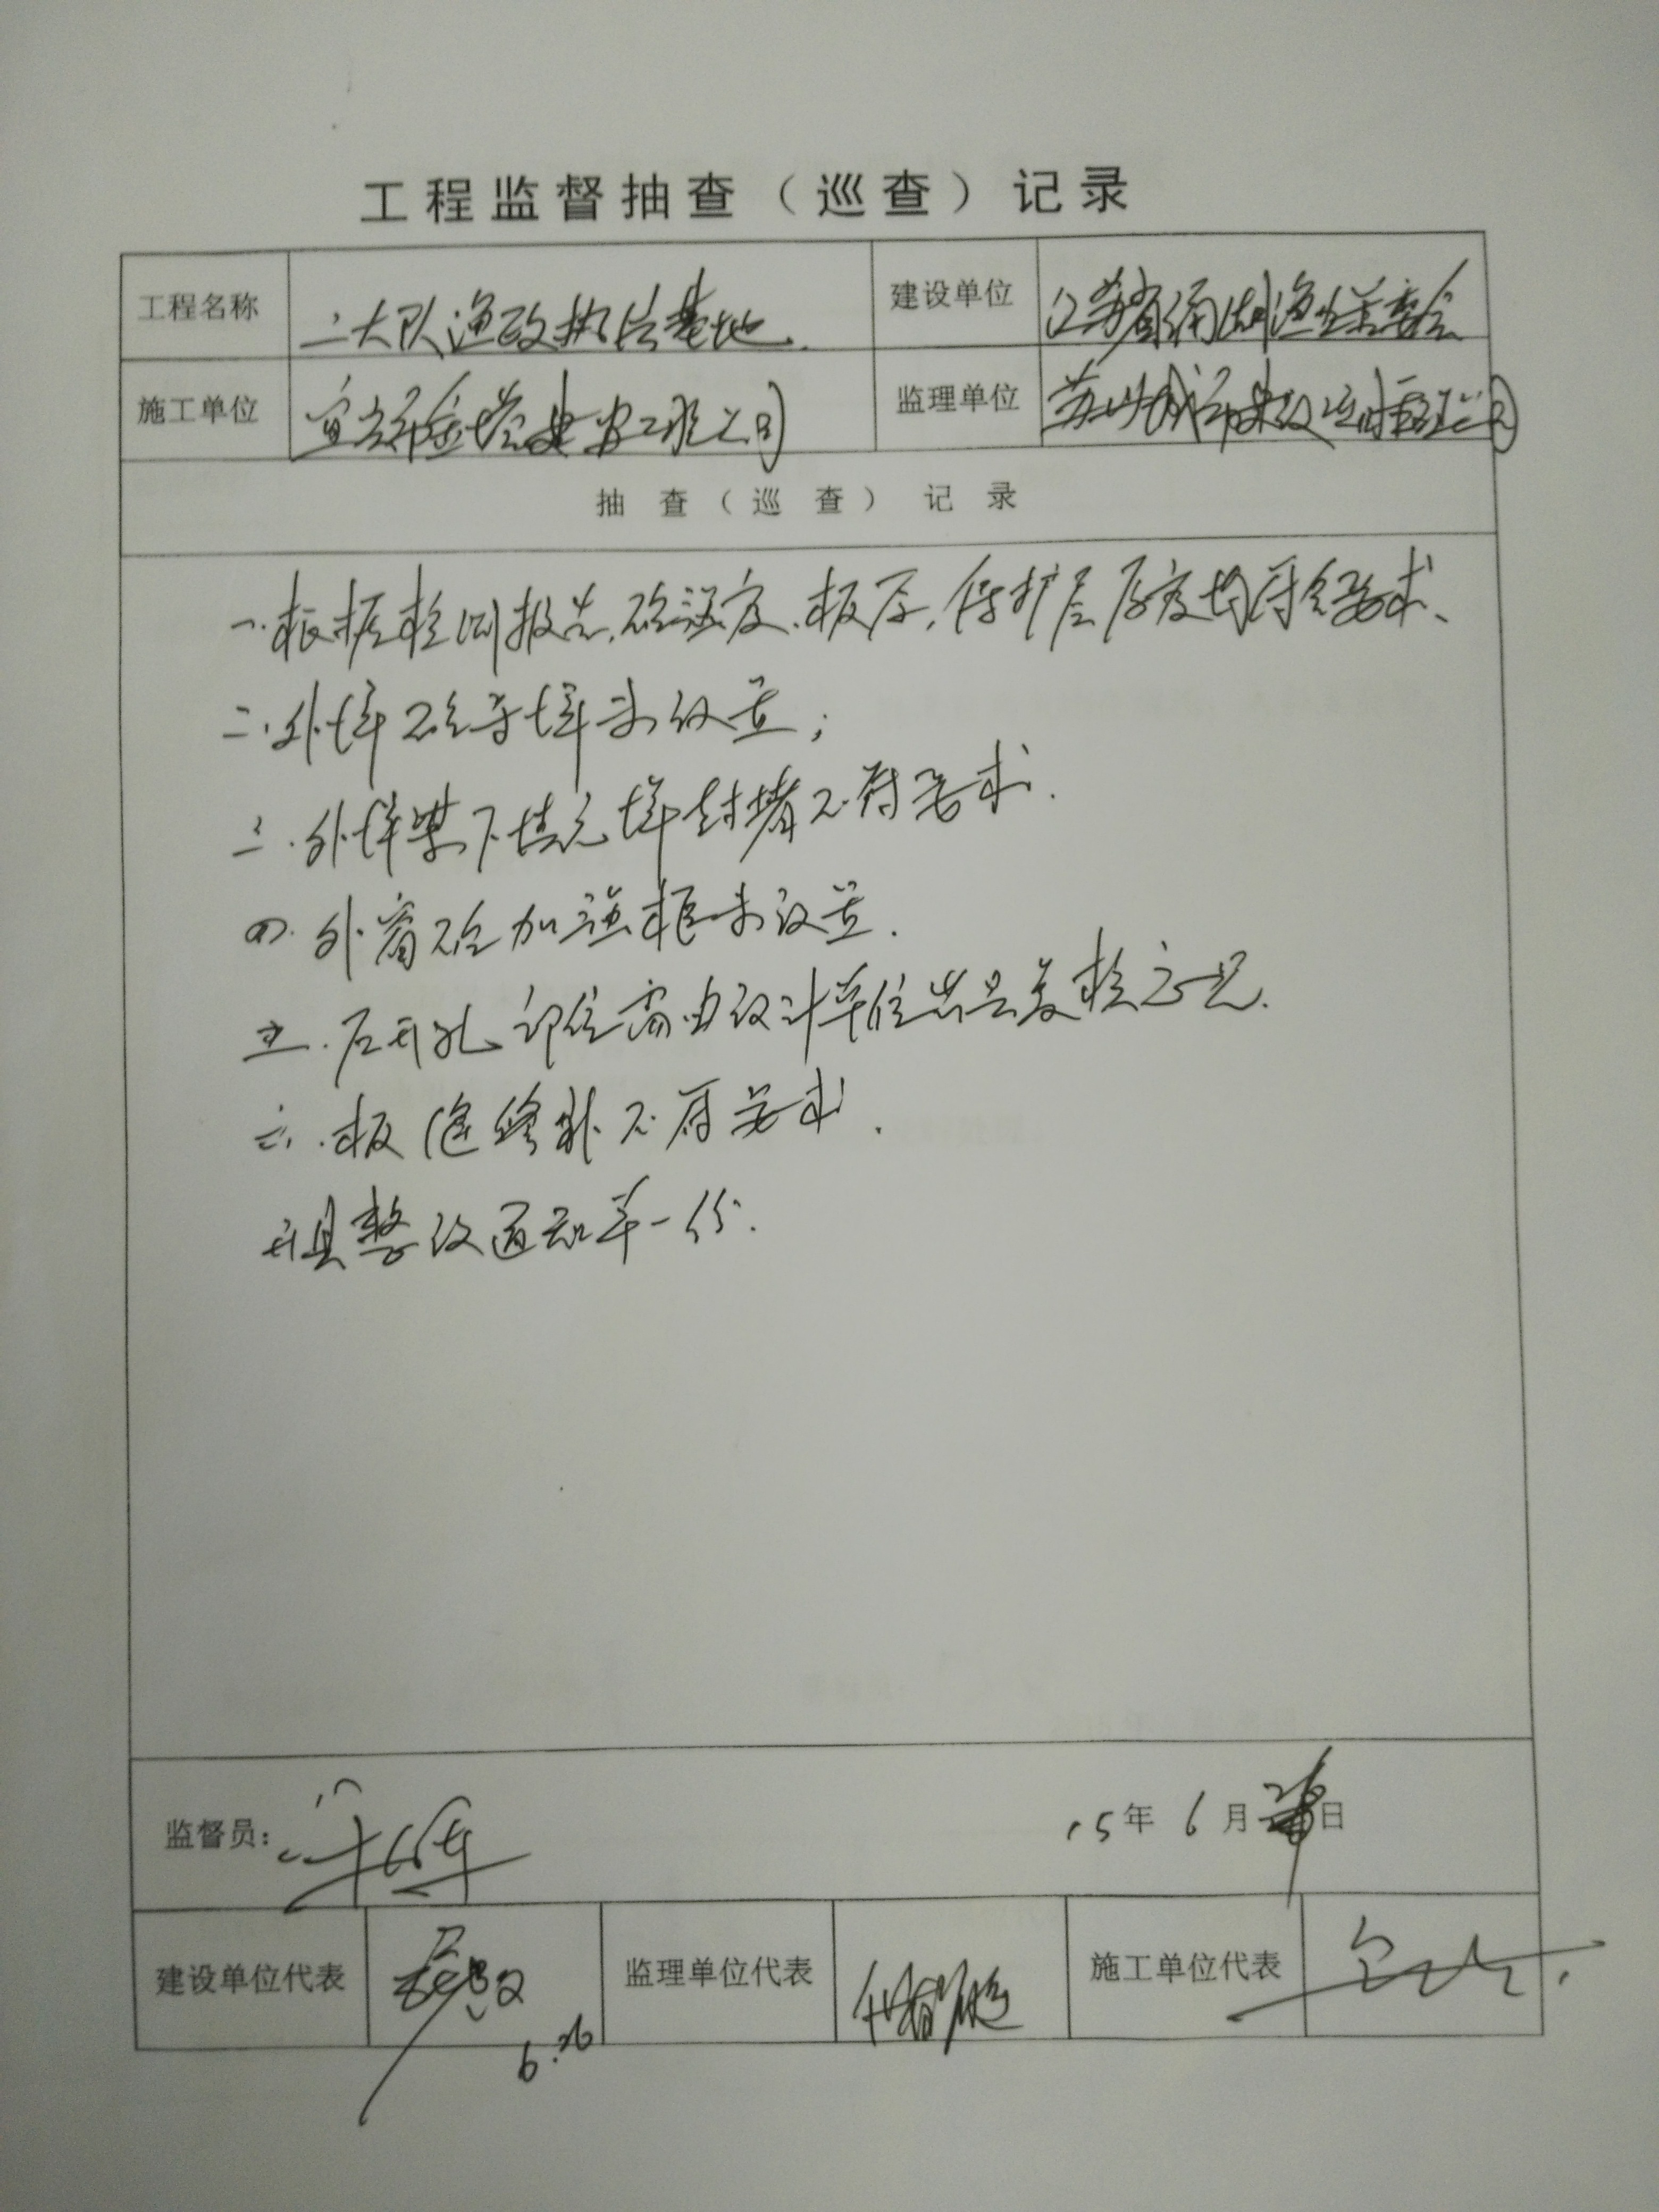 工程监督抽查（巡查）记录
工程名称 二大队渔政执法基地. 建设单位 江苏省滆湖渔业管委会
施工单位 宜兴市金塔建安工程公司 监理单位 苏州城市建设监理公司
抽查（巡查）记录
一.根据检测报告,砼强度、板厚,保护层厚度均符合要求、
二.外墙砼导墙未设置;
三.外墙梁下填充墙封堵不符要求.
四.外窗砼加强框未设置.
五.后开孔部位需由设计单位出具复核意见.
六.板缝修补不符要求.
开具整改通知单一份.
监督员: 15年6月 日
建设单位代表 监理单位代表 施工单位代表
6.26